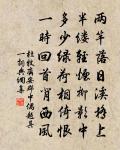 兩竿落日溪橋上
半縷輕煙柳影中
多少綠荷相倚恨
一時回首背西風
杜牧齊安郡中偶題其
一詞典網